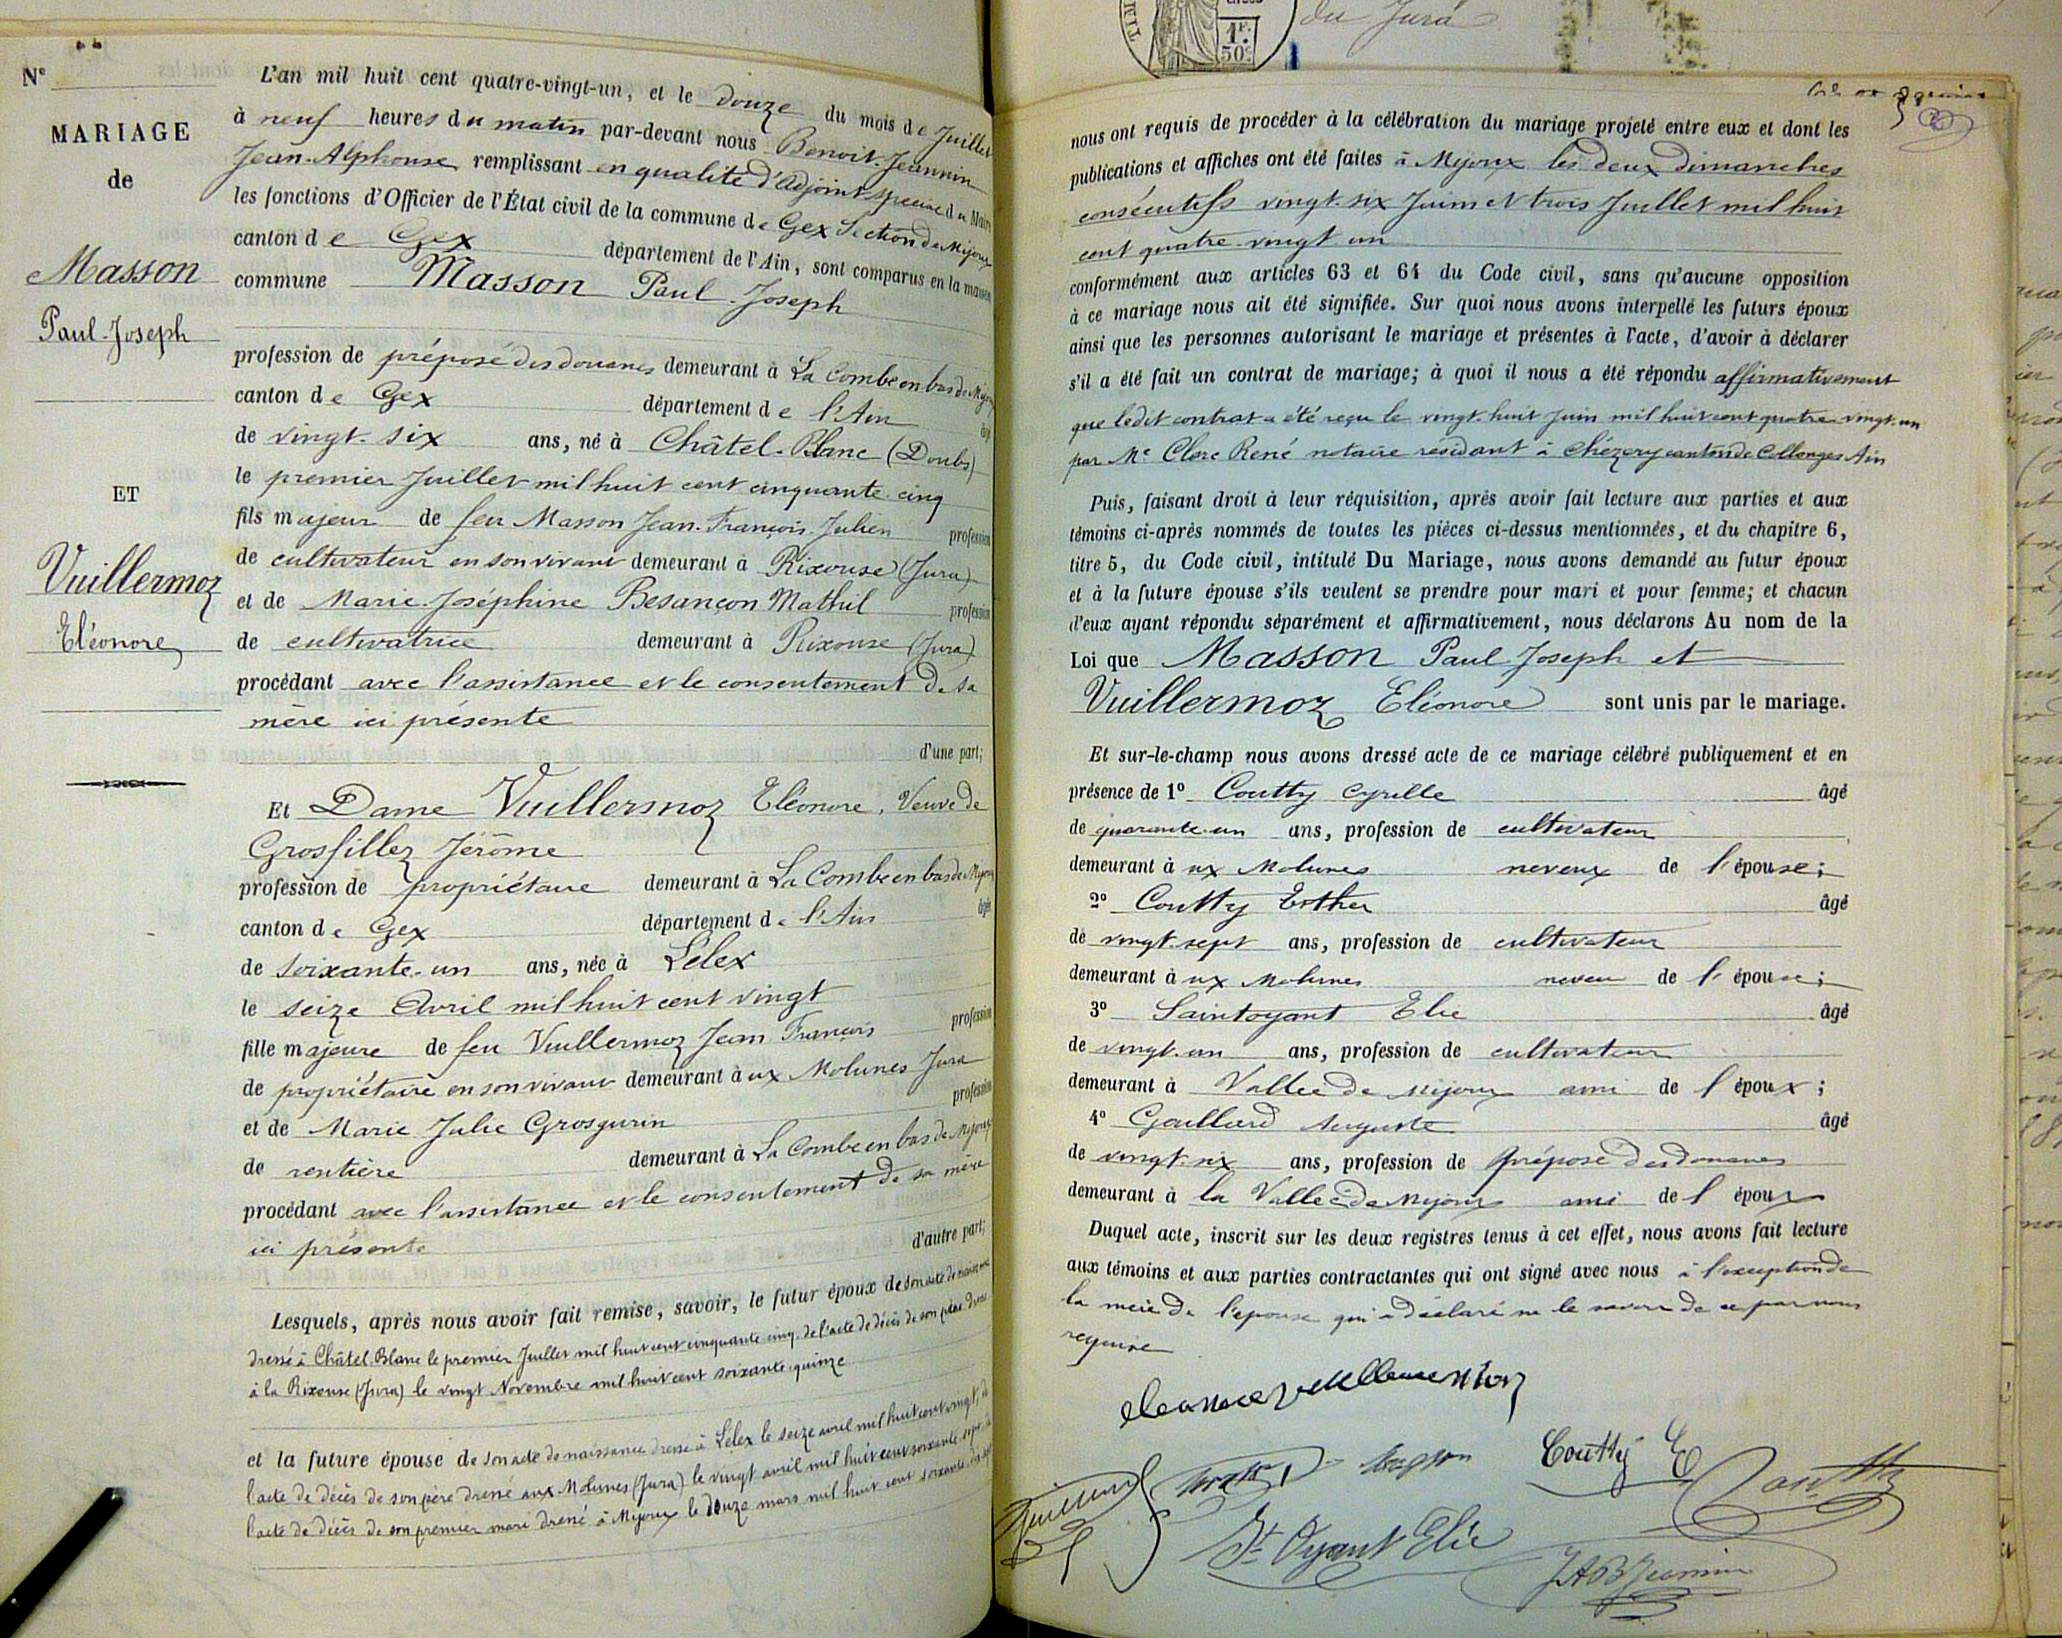 N°
MARIAGE
de
Masson
Paul-Joseph
ET
Vuillermoz
Eléonore
L'an mil huit cent quatre-vingt-un, et le douze du mois de Juillet
à neuf heures du matin par-devant nous Benoit-Jeannin
Jean-Alphonse remplissant en qualité d'adjoint spécial du Maire
les fonctions d'Officier de l'État civil de la commune de Gex Section de Mijoux
canton de Gex département de l'Ain, sont comparus en la maison
commune Masson Paul-Joseph
profession de préposé des douanes demeurant à La Combe en bas de Mijoux
canton de Gex département de l'Ain âgé
de vingt-six ans, né à Châtel-Blanc (Doubs)
le premier Juillet mil huit cent cinquante-cinq
fils majeur de feu Masson Jean-François Julien profession
de cultivateur en son vivant demeurant à Rixouse (Jura)
et de Marie-Joséphine Besançon Mathil profession
de cultivatrice demeurant à Rixouse (Jura)
procédant avec l'assistance et le consentement de sa
mère ici présente
d'une part;
Et Dame Vuillermoz Eléonore, Veuve de
Grosfillez Jérôme
profession de propriétaire demeurant à La Combe en bas de Mijoux
canton de Gex département de l'Ain âgée
de soixante-un ans, née à Lélex
le seize Avril mil huit cent vingt
fille majeure de feu Vuillermoz Jean François profession
de propriétaire en son vivant demeurant aux Molunes Jura
et de Marie Julie Grosgurin profession
de rentière demeurant à La Combe en bas de Mijoux
procédant avec l'assistance et le consentement de sa mère
ici présente
d'autre part;
Lesquels, après nous avoir fait remise, savoir, le futur époux de son acte de naissance
dressé à Châtel-Blanc le premier Juillet mil huit cent cinquante cinq, de l'acte de décès de son père dressé
à la Rixouse (Jura) le vingt Novembre mil huit cent soixante-quinze
et la future épouse de son acte de naissance dressé à Lélex le seize avril mil huit cent vingt, de
l'acte de décès de son père dressé aux Molunes (Jura) le vingt avril mil huit cent soixante sept, de
l'acte de décès de son premier mari dressé à Mijoux le douze mars mil huit cent soixante
1F.
50c
du Jura
nous ont requis de procéder à la célébration du mariage projeté entre eux et dont les
publications et affiches ont été faites à Mijoux les deux dimanches
consécutifs vingt-six Juin et trois Juillet mil huit
cent quatre-vingt un
conformément aux articles 63 et 64 du Code civil, sans qu'aucune opposition
à ce mariage nous ait été signifiée. Sur quoi nous avons interpellé les futurs époux
ainsi que les personnes autorisant le mariage et présentes à l'acte, d'avoir à déclarer
s'il a été fait un contrat de mariage; à quoi il nous a été répondu affirmativement
que ledit contrat a été reçu le vingt-huit Juin mil huit cent quatre-vingt-un
par Me Clerc René notaire résidant à Chézery canton de Collonges Ain
Puis, faisant droit à leur réquisition, après avoir fait lecture aux parties et aux
témoins ci-après nommés de toutes les pièces ci-dessus mentionnées, et du chapitre 6,
titre 5, du Code civil, intitulé Du Mariage, nous avons demandé au futur époux
et à la future épouse s'ils veulent se prendre pour mari et pour femme; et chacun
d'eux ayant répondu séparément et affirmativement, nous déclarons Au nom de la
Loi que Masson Paul-Joseph et
Vuillermoz Eléonore sont unis par le mariage.
Et sur-le-champ nous avons dressé acte de ce mariage célébré publiquement et en
présence de 1° Coutty Cyrille âgé
de quarante-un ans, profession de cultivateur
demeurant aux Molunes neveux de l'épouse;
2° Coutty Esther âgé
de vingt-sept ans, profession de cultivateur
demeurant aux Molunes neveu de l'épouse;
3° Saintoyant Elie âgé
de vingt-un ans, profession de cultivateur
demeurant à Vallée de Mijoux ami de l'époux;
4° Gaillard Auguste âgé
de vingt-six ans, profession de préposé des douanes
demeurant à la Vallée de Mijoux ami de l'époux
Duquel acte, inscrit sur les deux registres tenus à cet effet, nous avons fait lecture
aux témoins et aux parties contractantes qui ont signé avec nous à l'exception de
la mère de l'épouse qui a déclaré ne le savoir de ce par nous
requise
Masson Coutty E Coutty
St Oyant Elie
JAB Jeannin